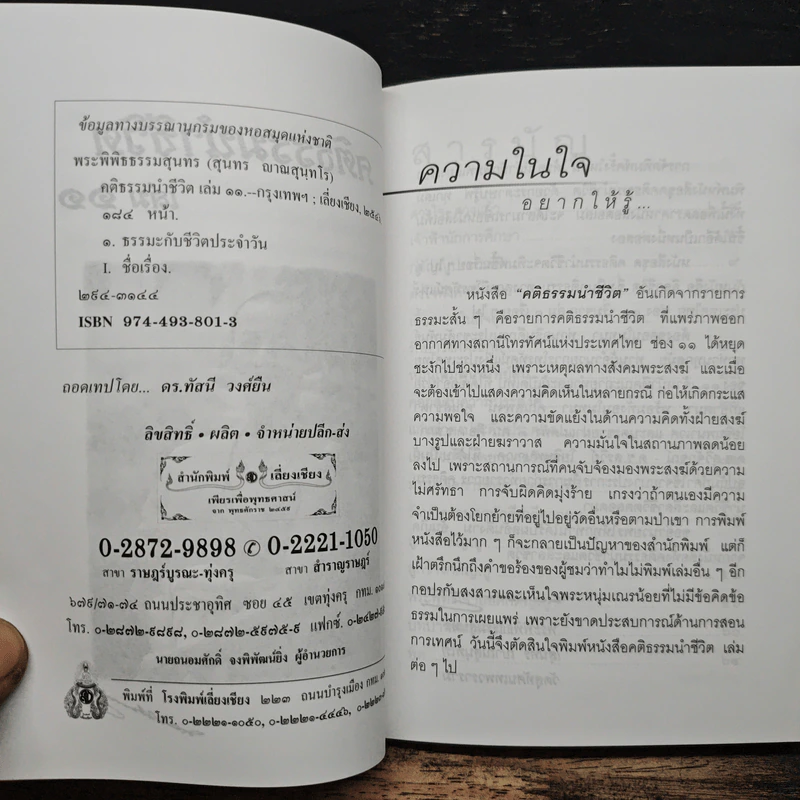 ข้อมูลทางบรรณานุกรมของหอสมุดแห่งชาติ
พระพิพิธธรรมสุนทร (สุนทร ญาณสุนฺทโร)
คติธรรมนำชีวิต เล่ม ๑๑.--กรุงเทพฯ ; เลี่ยงเชียง,
๑๘๔ หน้า.
๑. ธรรมะกับชีวิตประจำวัน
I. ชื่อเรื่อง.
๒๙๔-๓๑๔๔
ISBN 974-493-801-3
ถอดเทปโดย... ดร.ทัสนี วงศ์ยืน
ลิขสิทธิ์ • ผลิต • จำหน่ายปลีก-ส่ง
สำนักพิมพ์ เลี่ยงเชียง
เพียรเพื่อพุทธศาสน์
จาก พุทธศักราช ๒๔๕๕
0-2872-9898 ✆ 0-2221-1050
สาขา ราษฎร์บูรณะ-ทุ่งครุ สาขา สำราญราษฎร์
๖๗๙/๗๑-๗๔ ถนนประชาอุทิศ ซอย ๔๕ เขตทุ่งครุ กทม.
โทร. ๐-๒๘๗๒-๙๘๙๘, ๐-๒๘๗๒-๕๙๗๕-๙ แฟกซ์.
นายถนอมศักดิ์ จงพิพัฒน์ยิ่ง ผู้อำนวยการ
พิมพ์ที่ โรงพิมพ์เลี่ยงเชียง ๒๒๓ ถนนบำรุงเมือง กทม.
โทร. ๐-๒๒๒๑-๑๐๕๐, ๐-๒๒๒๑-๔๔๔๖,
ความในใจ
อยากให้รู้...
หนังสือ "คติธรรมนำชีวิต" อันเกิดจากรายการ
ธรรมะสั้น ๆ คือรายการคติธรรมนำชีวิต ที่แพร่ภาพออก
อากาศทางสถานีโทรทัศน์แห่งประเทศไทย ช่อง ๑๑ ได้หยุด
ชะงักไปช่วงหนึ่ง เพราะเหตุผลทางสังคมพระสงฆ์ และเมื่อ
จะต้องเข้าไปแสดงความคิดเห็นในหลายกรณี ก่อให้เกิดกระแส
ความพอใจ และความขัดแย้งในด้านความคิดทั้งฝ่ายสงฆ์
บางรูปและฝ่ายฆราวาส ความมั่นใจในสถานภาพลดน้อย
ลงไป เพราะสถานการณ์ที่คนจับจ้องมองพระสงฆ์ด้วยความ
ไม่ศรัทธา การจับผิดคิดมุ่งร้าย เกรงว่าถ้าตนเองมีความ
จำเป็นต้องโยกย้ายที่อยู่ไปอยู่วัดอื่นหรือตามป่าเขา การพิมพ์
หนังสือไว้มาก ๆ ก็จะกลายเป็นปัญหาของสำนักพิมพ์ แต่ก็
เฝ้าตรึกนึกถึงคำขอร้องของผู้ชมว่าทำไมไม่พิมพ์เล่มอื่น ๆ อีก
กอปรกับสงสารและเห็นใจพระหนุ่มเณรน้อยที่ไม่มีข้อคิดข้อ
ธรรมในการเผยแพร่ เพราะยังขาดประสบการณ์ด้านการสอน
การเทศน์ วันนี้จึงตัดสินใจพิมพ์หนังสือคติธรรมนำชีวิต เล่ม
ต่อ ๆ ไป